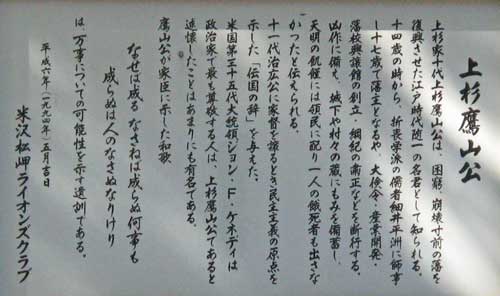 上杉鷹山公
上杉家十代上杉鷹山公は、困窮、崩壊寸前の藩を
復興させた江戸時代随一の名君として知られる。
十四歳の時から、折衷学派の儒者細井平洲に師事
し十七歳で藩主となるや、大倹令・産業開発・
藩校興譲館の創立、綱紀の粛正などを断行する。
凶作に備え、城下や村々の蔵にもみを備蓄し、
天明の飢饉には領民に配り一人の餓死者も出さな
かったと伝えられる。
十一代治広公に家督を譲るとき民主主義の原点を
示した「伝国の辞」を与えた。
米国第三十五代大統領ジョン・F・ケネディは
政治家で最も尊敬する人は、上杉鷹山公であると
述懐したことはあまりにも有名である。
鷹山公が家臣に示した和歌
なせば成る なさねば成らぬ何事も
成らぬは人のなさぬなりけり
は 万事についての可能性を示す遺訓である。
平成六年(一九九四年)五月吉日
米沢松岬ライオンズクラブ